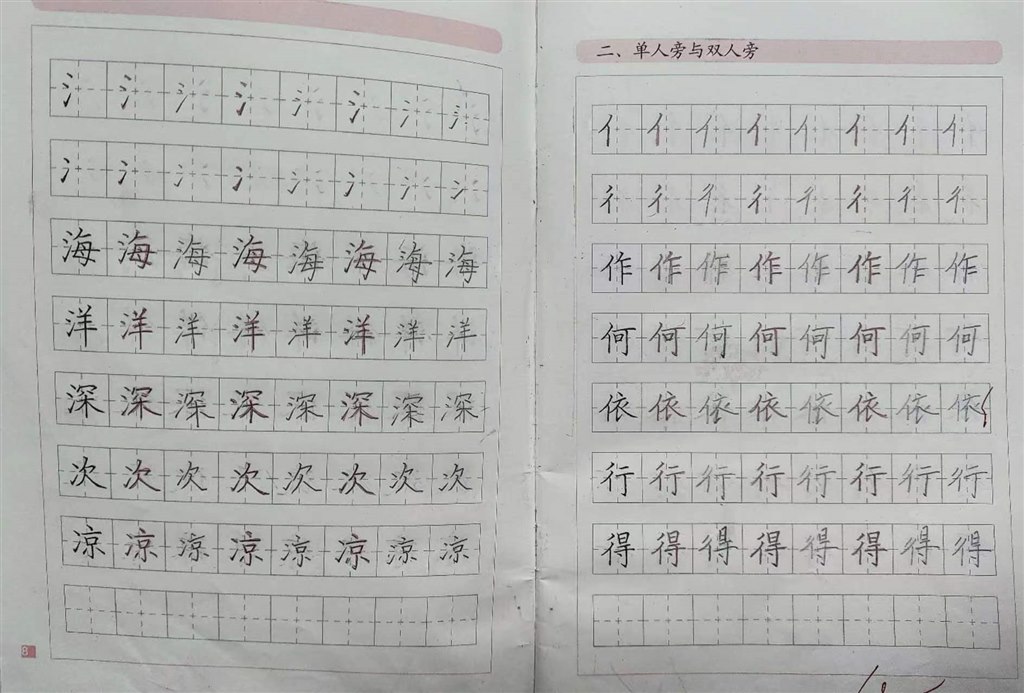 氵氵氵氵氵氵氵氵
冫冫冫冫冫冫冫冫
海海海海海海海海
洋洋洋洋洋洋洋洋
深深深深深深深深
次次次次次次次次
凉凉凉凉凉凉凉凉
8
二、单人旁与双人旁
亻亻亻亻亻亻亻亻
彳彳彳彳彳彳彳彳
作作作作作作作作
何何何何何何何何
依依依依依依依依
行行行行行行行行
得得得得得得得得